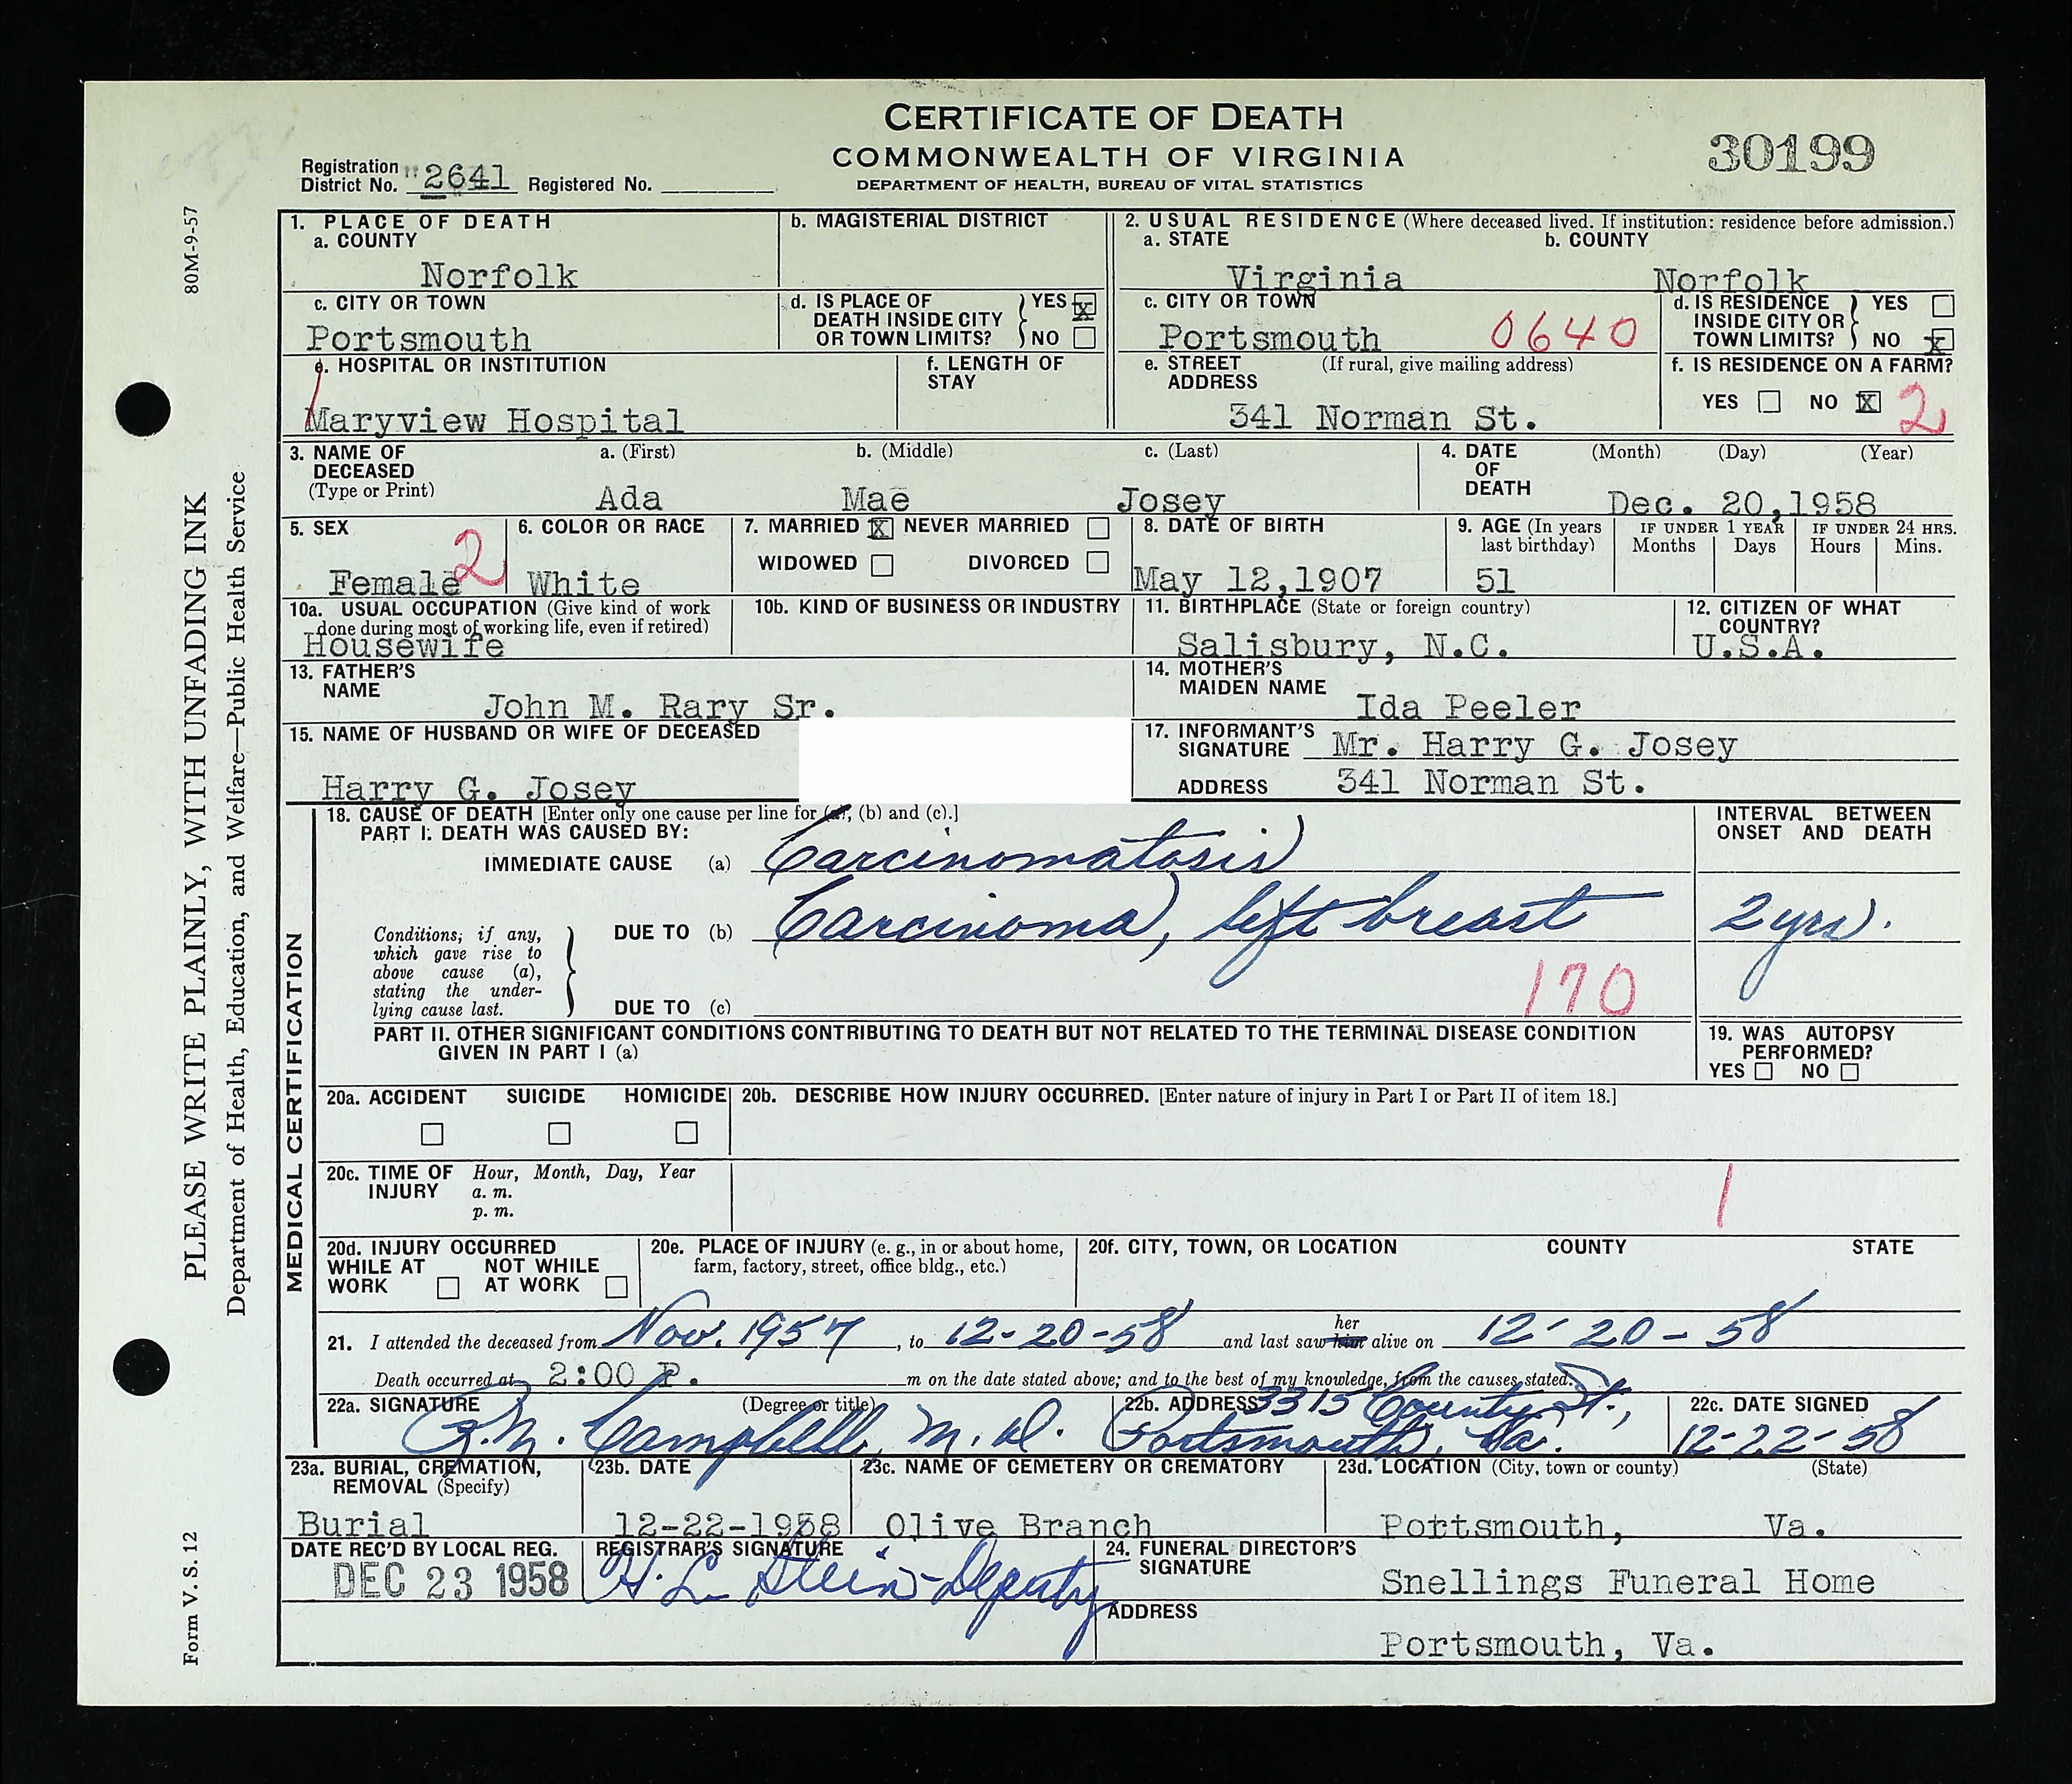 CERTIFICATE OF DEATH
COMMONWEALTH OF VIRGINIA
DEPARTMENT OF HEALTH, BUREAU OF VITAL STATISTICS
30199
Registration District No. 2641 Registered No.
80M-9-57
PLEASE WRITE PLAINLY, WITH UNFADING INK
Department of Health, Education, and Welfare—Public Health Service
Form V. S. 12
1. PLACE OF DEATH
a. COUNTY
Norfolk
b. MAGISTERIAL DISTRICT
2. USUAL RESIDENCE (Where deceased lived. If institution: residence before admission.)
a. STATE
Virginia
b. COUNTY
Norfolk
c. CITY OR TOWN
Portsmouth
d. IS PLACE OF DEATH INSIDE CITY OR TOWN LIMITS? YES X NO
c. CITY OR TOWN
Portsmouth 0640
d. IS RESIDENCE INSIDE CITY OR TOWN LIMITS? YES NO X
e. HOSPITAL OR INSTITUTION
Maryview Hospital
f. LENGTH OF STAY
e. STREET ADDRESS (If rural, give mailing address)
341 Norman St.
f. IS RESIDENCE ON A FARM?
YES NO X 2
3. NAME OF DECEASED (Type or Print)
a. (First) b. (Middle) c. (Last)
Ada Mae Josey
4. DATE OF DEATH (Month) (Day) (Year)
Dec. 20,1958
5. SEX
Female 2
6. COLOR OR RACE
White
7. MARRIED X NEVER MARRIED
WIDOWED DIVORCED
8. DATE OF BIRTH
May 12,1907
9. AGE (In years last birthday)
51
IF UNDER 1 YEAR
Months Days
IF UNDER 24 HRS.
Hours Mins.
10a. USUAL OCCUPATION (Give kind of work done during most of working life, even if retired)
Housewife
10b. KIND OF BUSINESS OR INDUSTRY
11. BIRTHPLACE (State or foreign country)
Salisbury, N.C.
12. CITIZEN OF WHAT COUNTRY?
U.S.A.
13. FATHER'S NAME
John M. Rary Sr.
14. MOTHER'S MAIDEN NAME
Ida Peeler
15. NAME OF HUSBAND OR WIFE OF DECEASED
Harry G. Josey
17. INFORMANT'S SIGNATURE Mr. Harry G. Josey
ADDRESS 341 Norman St.
MEDICAL CERTIFICATION
18. CAUSE OF DEATH [Enter only one cause per line for (a), (b) and (c).]
INTERVAL BETWEEN ONSET AND DEATH
PART I. DEATH WAS CAUSED BY:
IMMEDIATE CAUSE (a) Carcinomatosis
Conditions, if any, which gave rise to above cause (a), stating the underlying cause last.
DUE TO (b) Carcinoma, left breast 2 yrs.
170
DUE TO (c)
PART II. OTHER SIGNIFICANT CONDITIONS CONTRIBUTING TO DEATH BUT NOT RELATED TO THE TERMINAL DISEASE CONDITION GIVEN IN PART I (a)
19. WAS AUTOPSY PERFORMED?
YES NO
20a. ACCIDENT SUICIDE HOMICIDE
20b. DESCRIBE HOW INJURY OCCURRED. [Enter nature of injury in Part I or Part II of item 18.]
20c. TIME OF INJURY Hour, Month, Day, Year
a. m.
p. m.
1
20d. INJURY OCCURRED
WHILE AT WORK NOT WHILE AT WORK
20e. PLACE OF INJURY (e. g., in or about home, farm, factory, street, office bldg., etc.)
20f. CITY, TOWN, OR LOCATION COUNTY STATE
21. I attended the deceased from Nov. 1957, to 12-20-58 and last saw her him alive on 12-20-58
Death occurred at 2:00 P. m on the date stated above; and to the best of my knowledge, from the causes stated.
22a. SIGNATURE (Degree or title)
Campbell, M.D.
22b. ADDRESS 3315 County St., Portsmouth, Va.
22c. DATE SIGNED
12-22-58
23a. BURIAL, CREMATION, REMOVAL (Specify)
Burial
23b. DATE
12-22-1958
23c. NAME OF CEMETERY OR CREMATORY
Olive Branch
23d. LOCATION (City, town or county) (State)
Portsmouth, Va.
DATE REC'D BY LOCAL REG.
DEC 23 1958
REGISTRAR'S SIGNATURE
H. L. Stein-Deputy
24. FUNERAL DIRECTOR'S SIGNATURE
Snellings Funeral Home
ADDRESS
Portsmouth, Va.